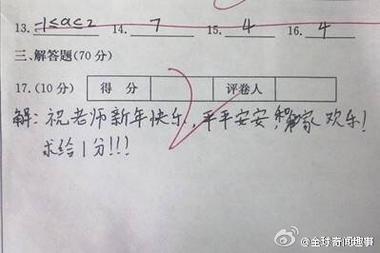 13. -1≤a≤2 14. 7 15. 4 16. 4
三、解答题(70分)
17.(10分) 得 分 评卷人
解:祝老师新年快乐,平平安安,阖家欢乐!
求给1分!!!
@全球奇闻趣事